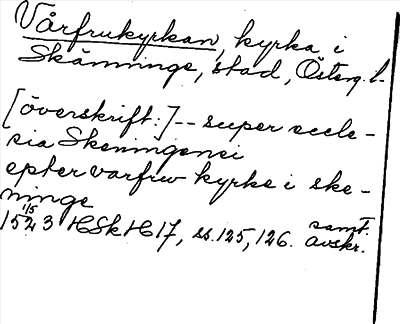 Vårfrukyrkan, kyrka i
Skänninge, stad, Österg. l.
[överskrift:] -- super eccle-
sia Skeningensi
epter varfrw kyrke i ske-
ninge
1523 1/5 HSkH 17, ss. 125, 126. samt. avskr.